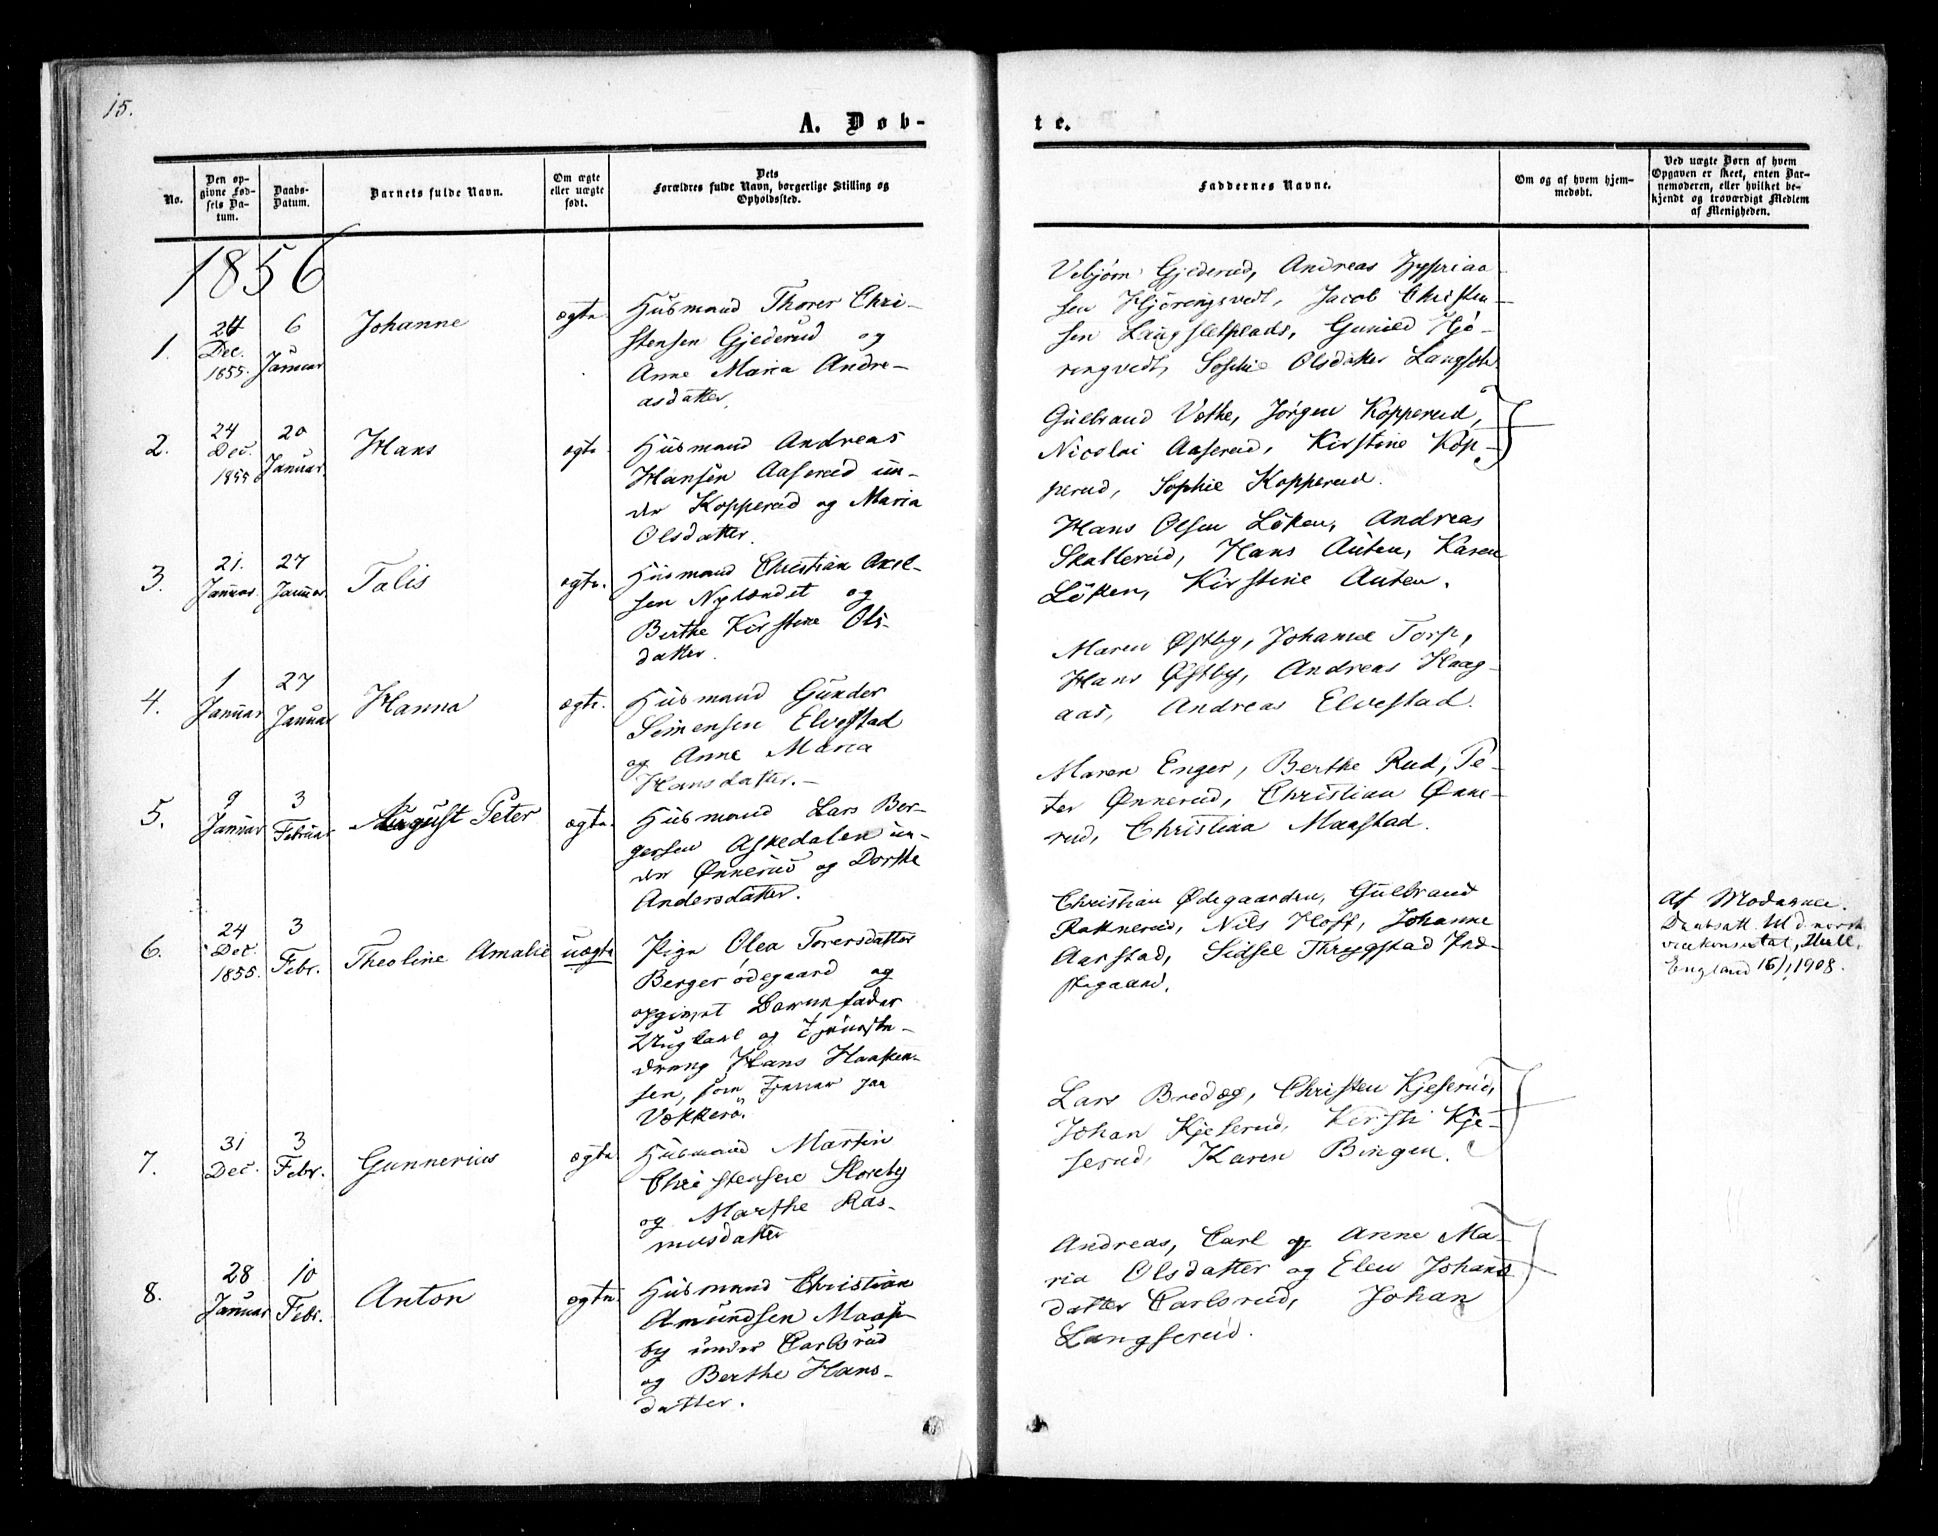 15.
A. Døb-
te.
No.
Den op-
givne Fød-
sels Da-
tum.
Daabs-
Datum.
Barnets fulde Navn.
Om ægte
eller uægte
født.
Dets
Forældres fulde Navn, borgerlige Stilling og
Opholdssted.
Faddernes Navne.
Om og af hvem hjem-
medøbt.
Ved uægte Børn af hvem
Opgaven er skeet, enten Bar-
nemoderen, eller hvilket be-
kjendt og troværdigt Medlem
af Menigheden.
1856
1.
Dec.
1855.
6
Januar
Johanne
ægte
Husmand Thorer Chri-
stensen Gjederud og
Anne Maria Andre-
asdatter.
Vebjørn Gjederud, Andreas
sen Hjøringsvedt, Jacob Christen-
sen Langsletplads, Gunild Hjø-
ringvedt, Sophie Olsdatter
2.
24
Dec.
1855
20
Januar.
Hans
ægte
Husmand Andreas
Hansen Aaserud un-
der Kopperud og Maria
Olsdatter.
Gulbrand Vethe, Jørgen Kopperud,
Nicolai Aaserud, Kirstine Kop-
perud, Sophie Kopperud.
3.
21.
Januar.
27
Januar.
Talis
ægte.
Husmand Christian Axel-
sen Nylændet og
Berthe Kirstine Ols-
datter.
Hans Olsen Løken, Andreas
Skallerud, Hans Auten, Karen
Løken, Kirstine Auten.
4.
1
Januar
27
Januar
Hanna
ægte.
Husmand Gunder
Simensen Elvestad
og Anne Maria
Hansdatter.-
Maren Østby, Johanne Torp,
Hans Østby, Andreas Haag-
aas, Andreas Elvestad.
5.
9
Januar
3
Februar
August Peter
ægte
Husmand Lars Ber-
gersen Askedalen un-
der Ønnerud og Dorthe
Andersdatter.
Maren Enger, Berthe Rud, Pe-
ter Ønnerud, Christian Ønne-
rud, Christian Maastad.
6.
24
Dec.
1855.
3
Febr.
Theoline Amalie
uægte
Pige Olea Torersdatter
Berger ødegaard og
opgivet Barnefader
Ungkarl og Tjeneste-
dreng Hans Haaken-
sen, som tjener paa
Vækkerø.
Christian Ødegaarden, Gulbrand
Raknerud, Nils Hoff, Johanne
Aarstad, Sidsel Thrygstad Præ-
stegaard.
Af Moderen.
Daabsatt. til d. norske
vicekonsulat, Hull,
England 16/1 1908.
7.
31
Dec.
3
Febr.
Gunnerius
ægte
Husmand Martin
Christensen Storeby
og Marthe Ras-
musdatter
Lars Bredæg, Christen Kjeserud,
Johan Kjeserud, Kirsti Kje-
serud, Karen Bingen.
8.
28
Januar
10
Febr.
Anton
ægte
Husmand Christian
Amundsen Maase-
by under Carlsrud
og Berthe Hans-
datter.
Andreas, Carl og Anne Ma-
ria Olsdatter og Elen Johans
datter Carlsrud, Johan
Langserud.